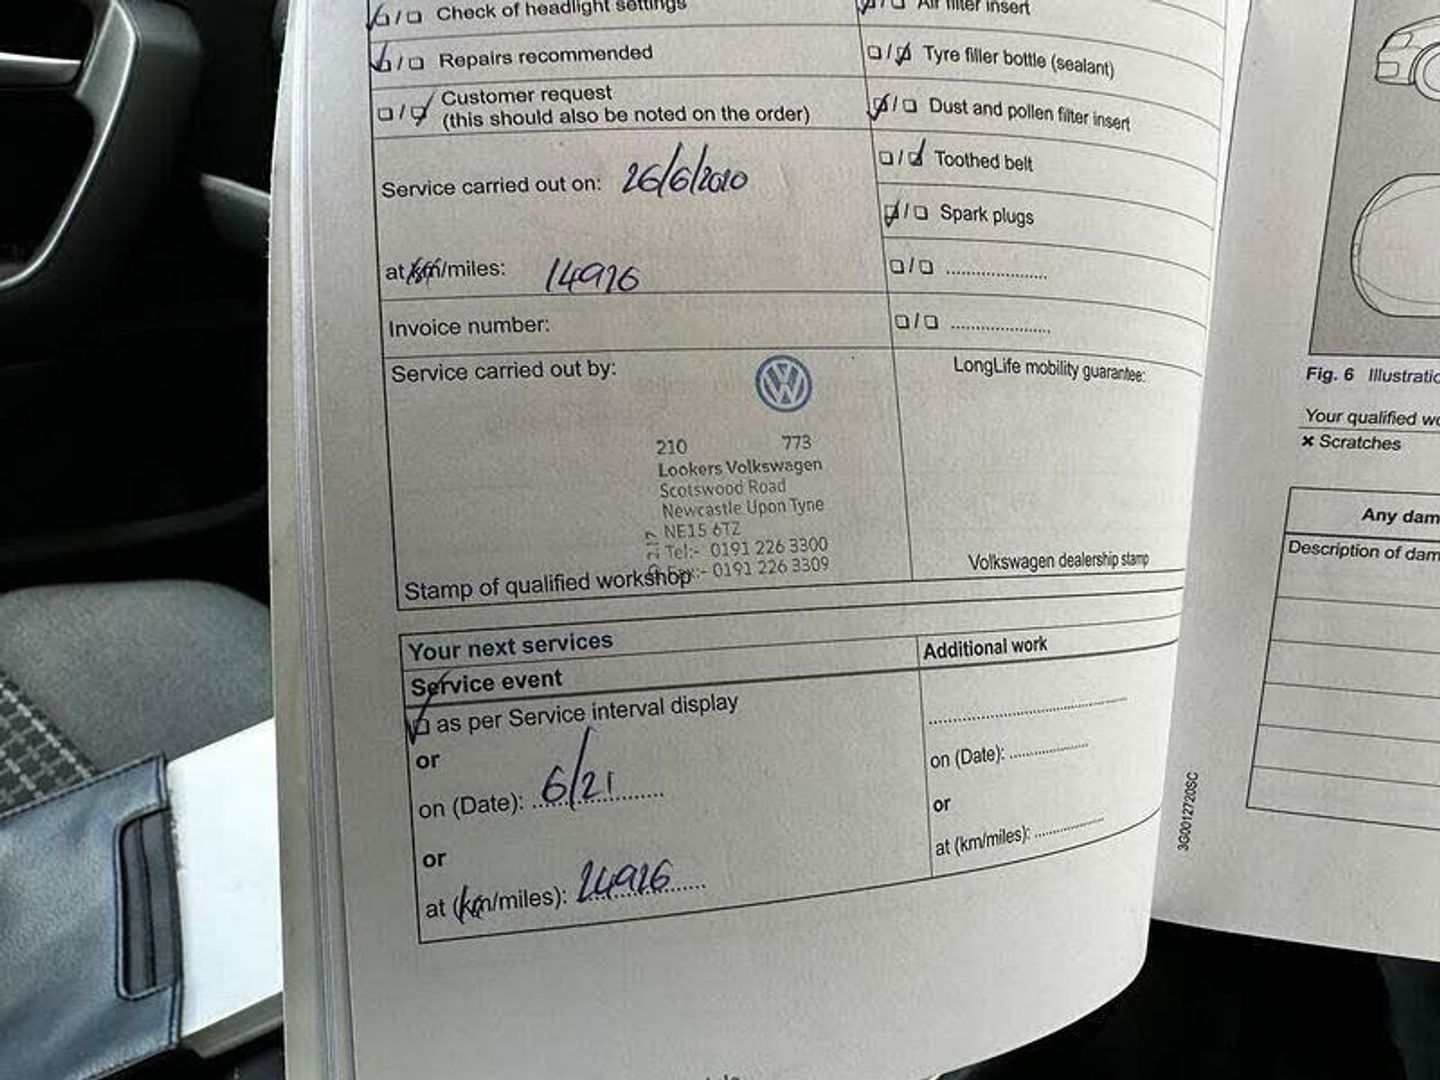 Check of headlight settings
Repairs recommended
Customer request
(this should also be noted on the order)
Service carried out on: 26/6/2020
at km/miles: 14926
Invoice number:
Service carried out by:
210 773
Lookers Volkswagen
Scotswood Road
Newcastle Upon Tyne
NE15 6TZ
Tel:- 0191 226 3300
Fax:- 0191 226 3309
Stamp of qualified workshop
Air filter insert
Tyre filler bottle (sealant)
Dust and pollen filter insert
Toothed belt
Spark plugs
LongLife mobility guarantee:
Volkswagen dealership stamp
Your next services
Service event
as per Service interval display
or
on (Date): 6/21
or
at (km/miles): 24926
Additional work
on (Date):
or
at (km/miles):
3G0012720SC
Fig. 6 Illustratio
Your qualified wo
× Scratches
Any dam
Description of dam